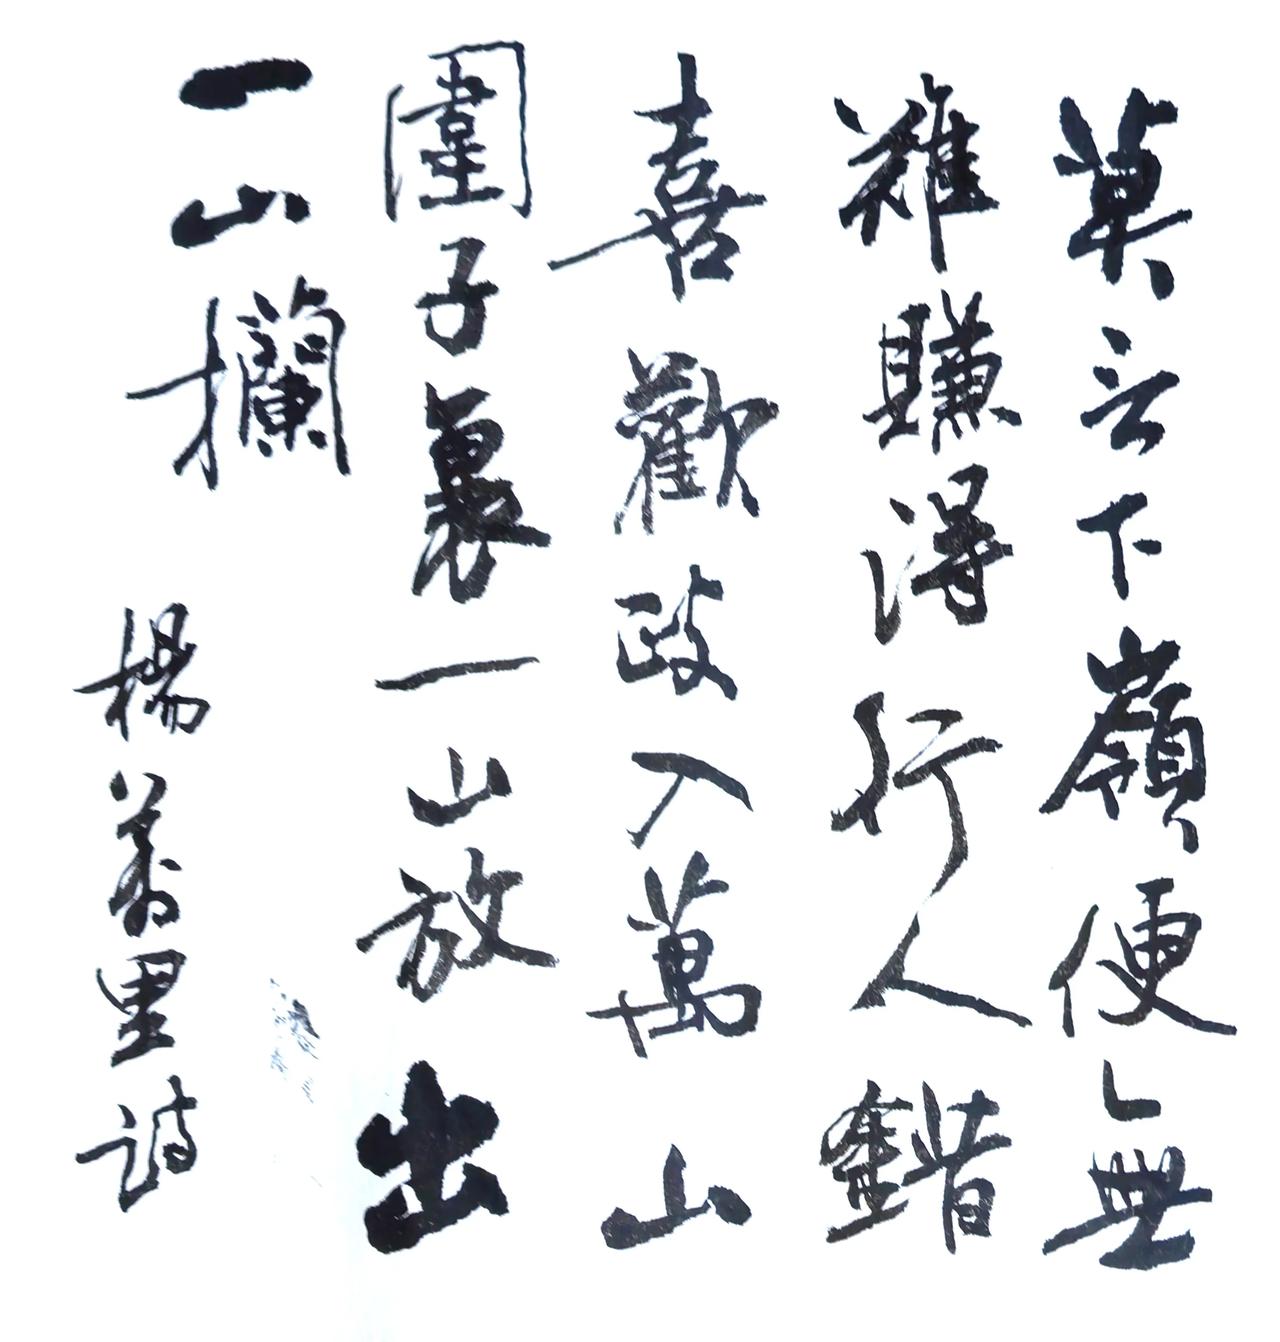 莫言下嶺便無
難賺得行人錯
喜歡政入萬山
圍子裏一山放出
一山攔
楊萬里詩